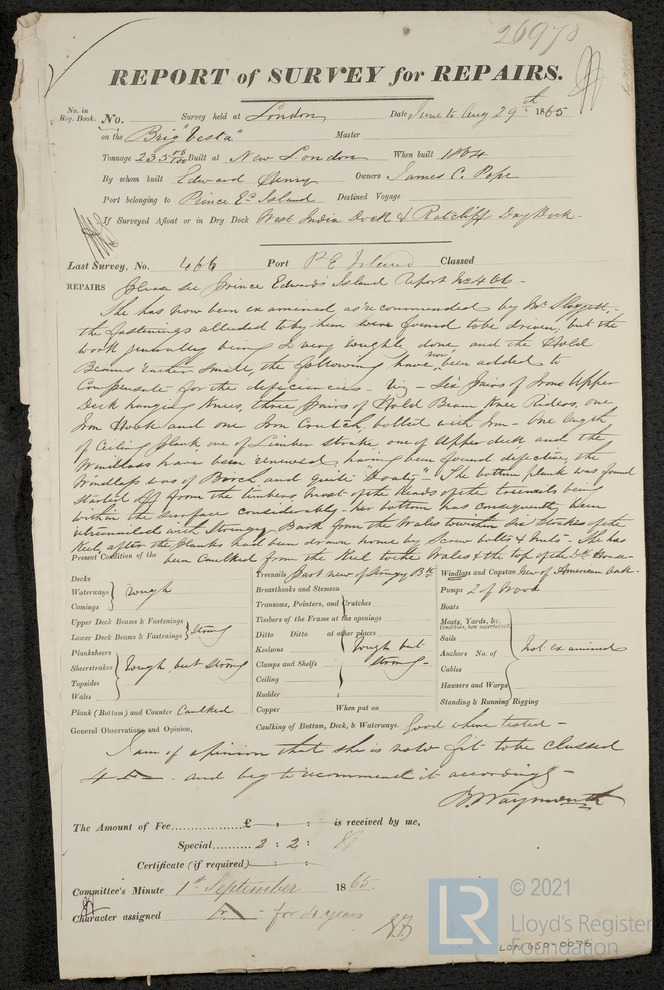 26978
REPORT of SURVEY for REPAIRS.
No. in Reg. Book. No. Survey held at London Date June to Aug 29th 1865
on the Brig "Vesta" Master
Tonnage 235 00/100 Built at New London When built 1864
By whom built Edward Owners James C. Pope
Port belonging to Prince Ed Island Destined Voyage
If Surveyed Afloat or in Dry Dock West India Dock & Ratcliff Dry Dock -
Last Survey, No. 466 Port P E Island Classed
REPAIRS Please see Prince Edward's Island Report No 466 -
She has now been examined, as recommended by Mr
the fastenings alluded to by him were found to be driven, but the
work generally being very roughly done, and the Hold
Beams rather small, the following have now been added to
Compensate for the deficiencies - Viz - Six Pairs of Iron Upper
Deck hanging Knees, three Pairs of Hold Beam Knee Riders, one
Iron Hook and one Iron Crutch, bolted with Iron - One length
of Ceiling Plank one of Limber strake one of Upper deck and the
Windlass have been renewed, having been found defective, the
Windlass was of Birch and quite "Doaty" - The bottom plank was found
started off from the timbers, most of the heads of the treenails being
within the surface considerably - her bottom has consequently been
retreenailed with Stringy Bark from the Wales to within six strakes of the
Keel, after the planks had been drawn home by Screw bolts & nuts - She has
Present Condition of the been Caulked from the Keel to the Wales & the top of the House -
Decks
Waterways
Comings
rough
Upper Deck Beams & Fastenings
Lower Deck Beams & Fastenings
strong
Planksheers
Sheerstrakes
Topsides
Wales
rough but strong
Plank (Bottom) and Counter Caulked
Treenails Part new of Stringy Bk
Breasthooks and Stemson
Transoms, Pointers, and Crutches
Timbers of the Frame at the openings
Ditto Ditto at other places
Keelsons
Clamps and Shelfs
Ceiling
Rudder
rough but strong -
Copper When put on
Windlass and Capstan New of American Oak -
Pumps 2 of Wood
Boats
Masts, Yards, &c.
Condition, how ascertained
Sails
Anchors No. of
Cables
Hawsers and Warps
not examined
Standing & Running Rigging
General Observations and Opinion, Caulking of Bottom, Deck, & Waterways. Good when tested -
I am of opinion that she is now fit to be classed
4 - and beg to recommend it accordingly -
B. Waymouth
The Amount of Fee £ : : is received by me,
Special 2 : 2 :
Certificate (if required) : :
Committee's Minute 1st September 1865.
Character assigned - for 4 years
LR © 2021
Lloyd's Register
Foundation
LON 650-0076